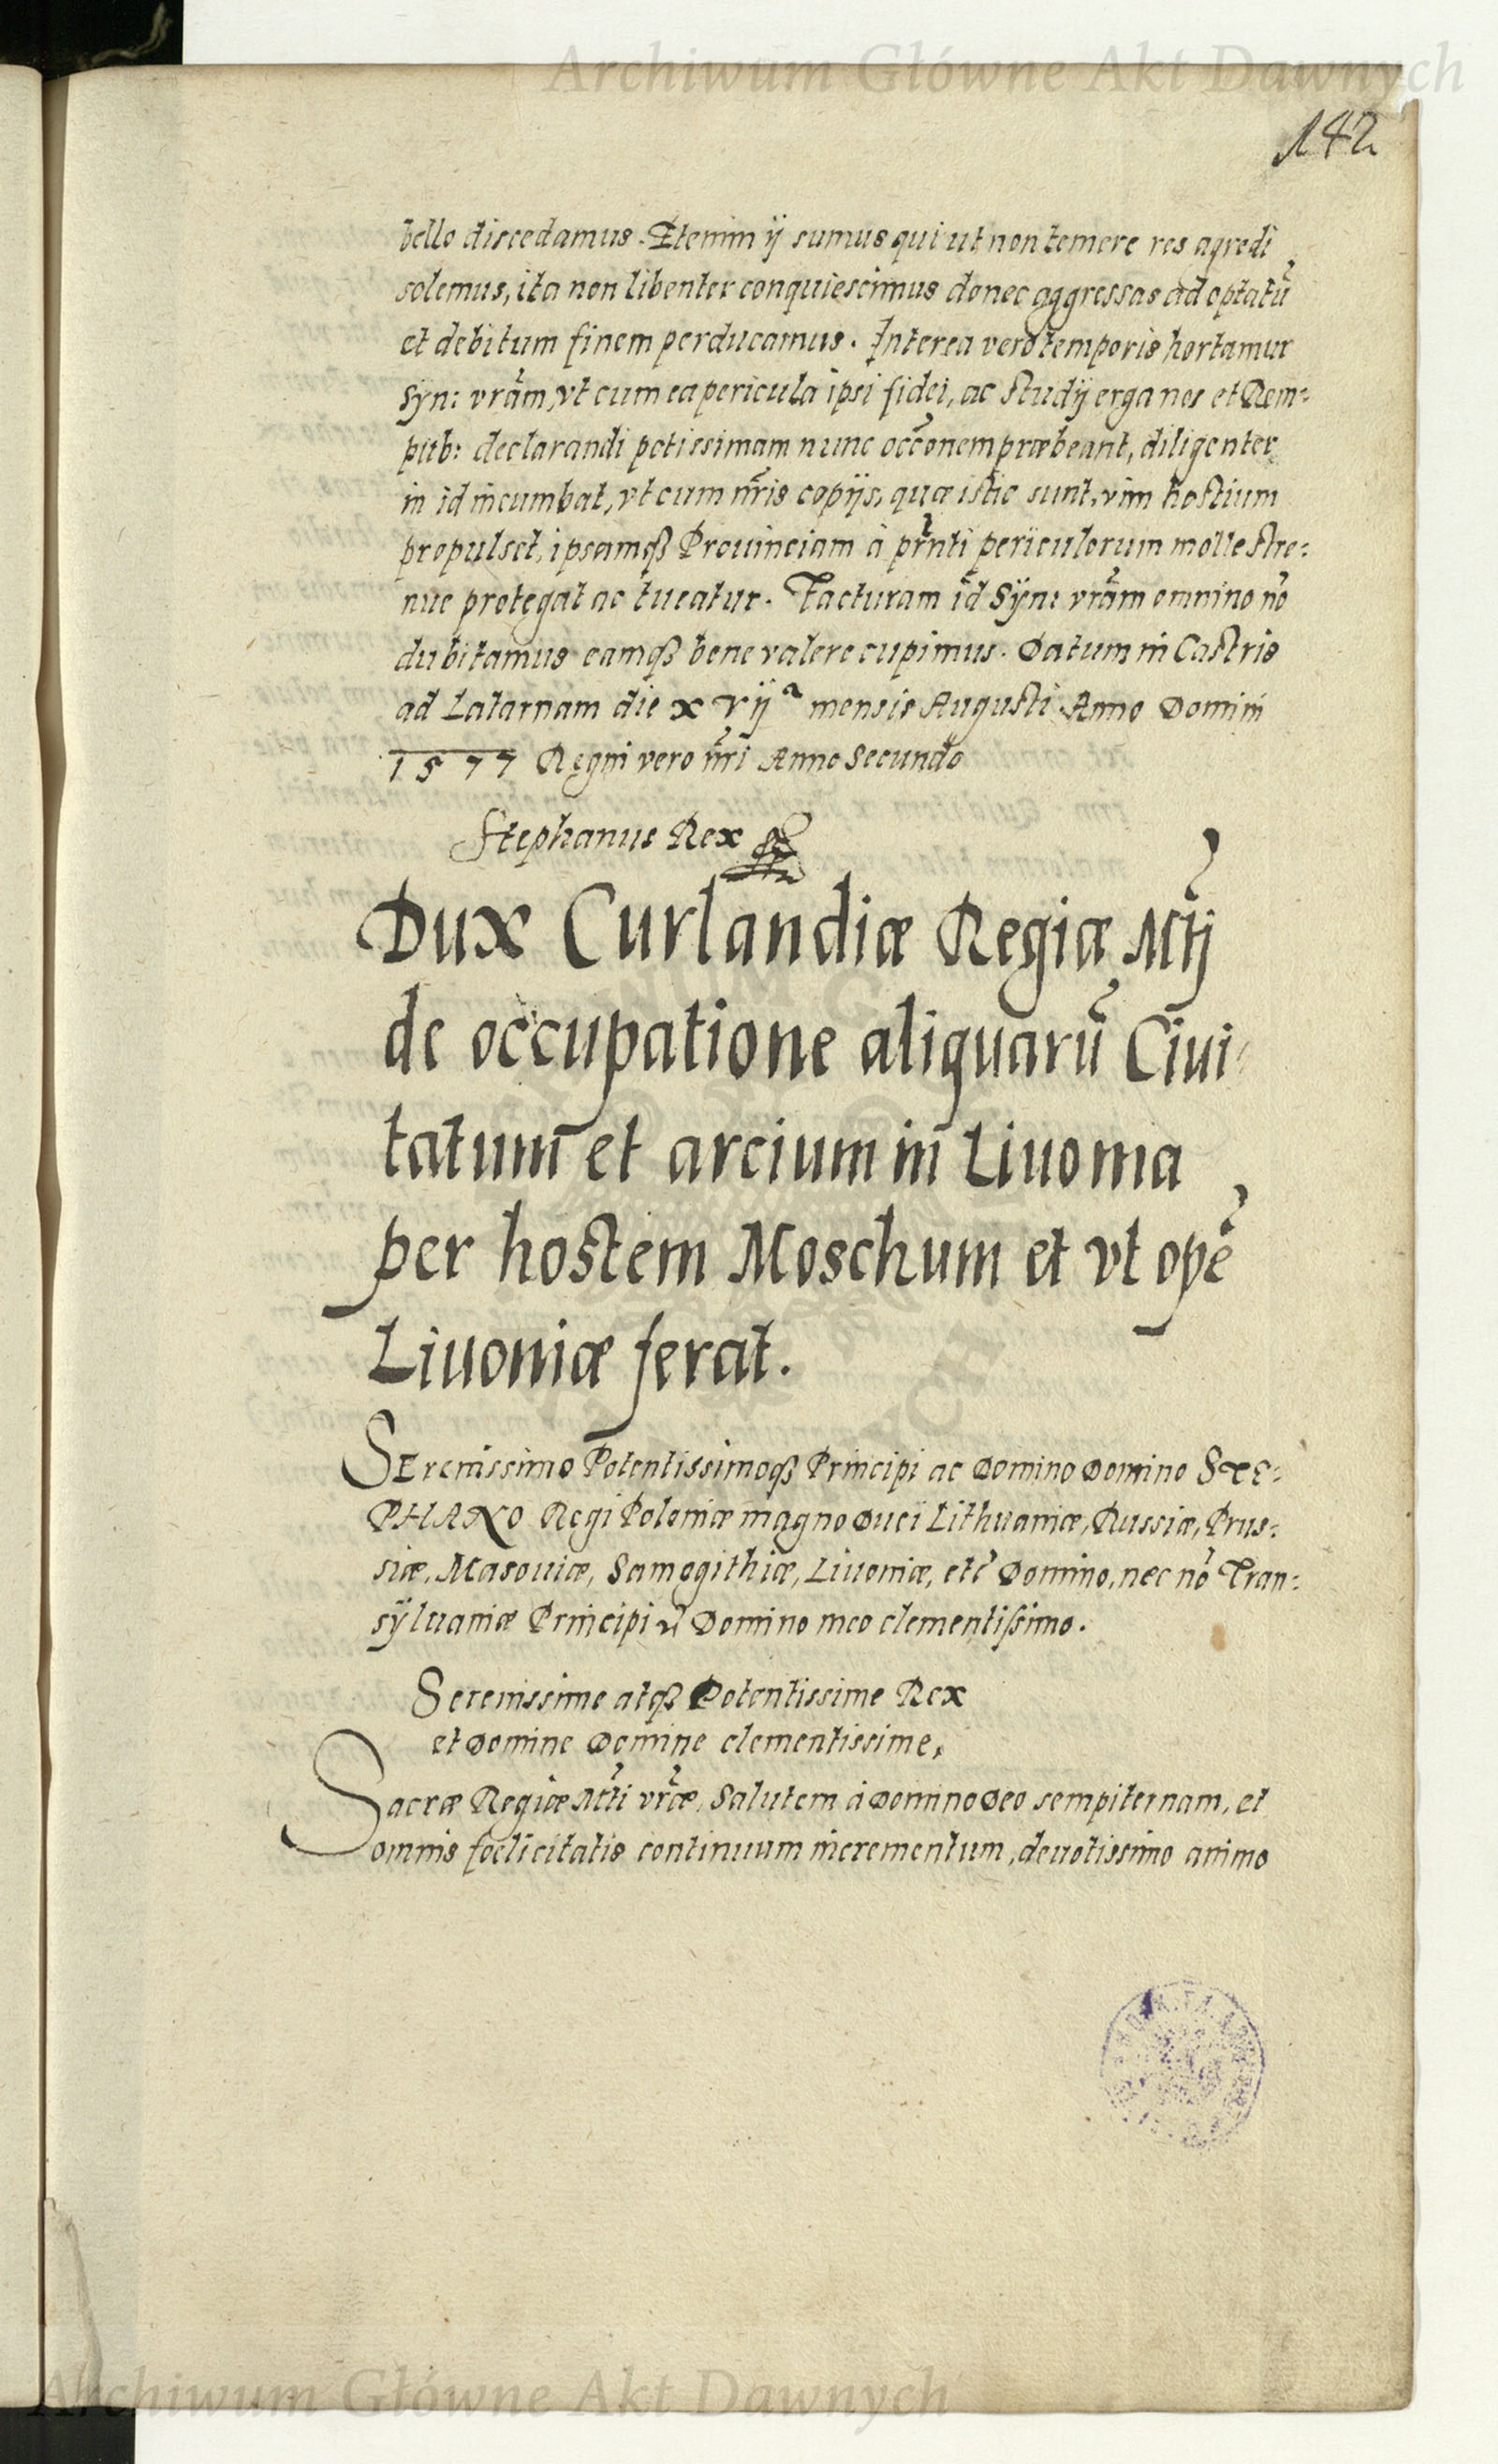 Archiwum Główne Akt Dawnych
142
bello discedamus. Etenim ij sumus qui ut non temere res agredi
solemus, ita non libenter conquiescimus donec aggressas ad optatū
et debitum finem perducamus. Interea vero temporis hortamur
Syn: vrām, vt cum ea pericula ipsi fidei, ac studij erga nos et Rem-
pub: declarandi potissimam nunc occōnem præbeant, diligenter
in id incumbat, vt cum nr̄is copijs, quæ istic sunt, vim hostium
propulset, ipsamqȝ Prouinciam à pr̄nti periculorum molle stre-
nue protegat ac tueatur. Facturam id Syn: vrām omnino nō
dubitamus eamqȝ bene valere cupimus. Datum in Castris
ad Latarnam die xvijᵃ mensis Augusti Anno Domini
1577 Regni vero nr̄i Anno Secundo
Stephanus Rex
Dux Curlandiæ Regiæ Mtī
de occupatione aliquarū Ciui-
tatum et arcium in Liuonia
per hostem Moschum et vt opē
Liuoniæ ferat.
Serenissimo Potentissimoqȝ Principi ac Domino Domino STE-
PHANO Regi Poloniæ magno Duci Lithuaniæ, Russiæ, Prus-
siæ, Masouiæ, Samogithiæ, Liuoniæ, etc̄ Domino, nec nō Tran-
syluaniæ Principi Domino meo clementissimo.
Serenissime atqȝ Potentissime Rex
et Domine Domine clementissime,
Sacræ Regiæ Mtī vrāe, Salutem à Domino Deo sempiternam, et
omnis fœlicitatis continuum incrementum, deuotissimo animo
Archiwum Główne Akt Dawnych